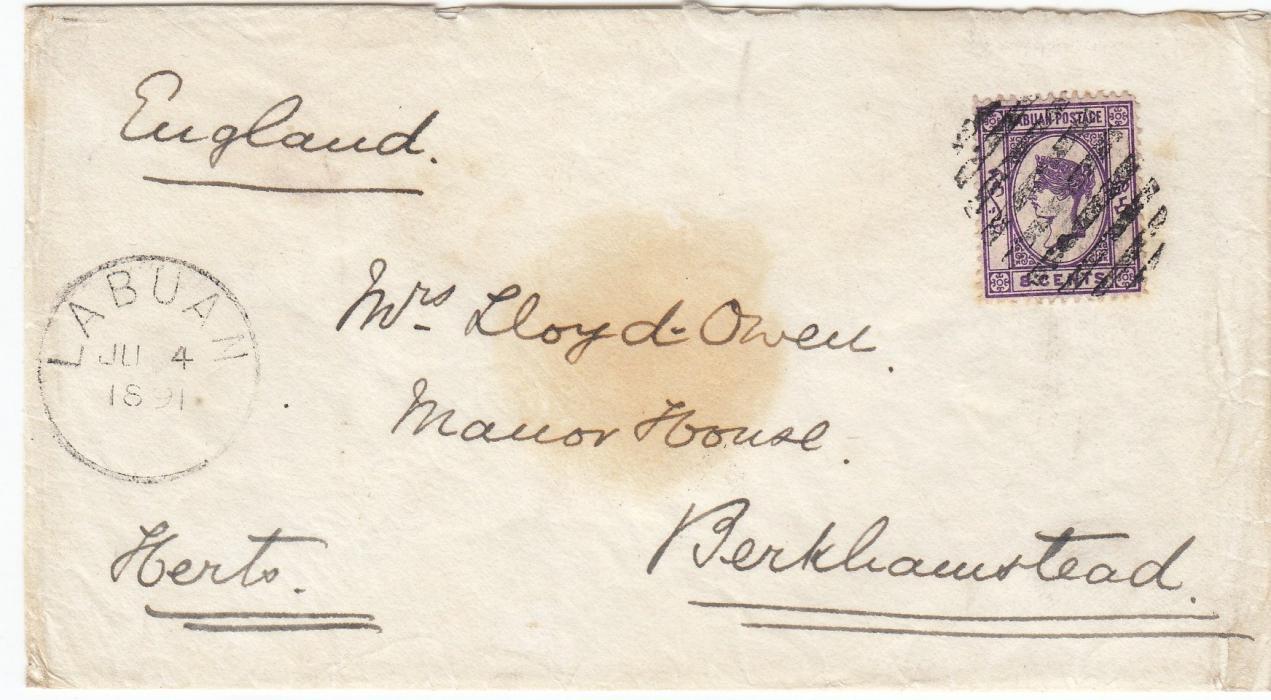 England.
LABUAN
JU 4
1891
LABUAN POSTAGE
8 CENTS
Mrs Lloyd-Owen.
Manor House.
Berkhamstead.
Herts.